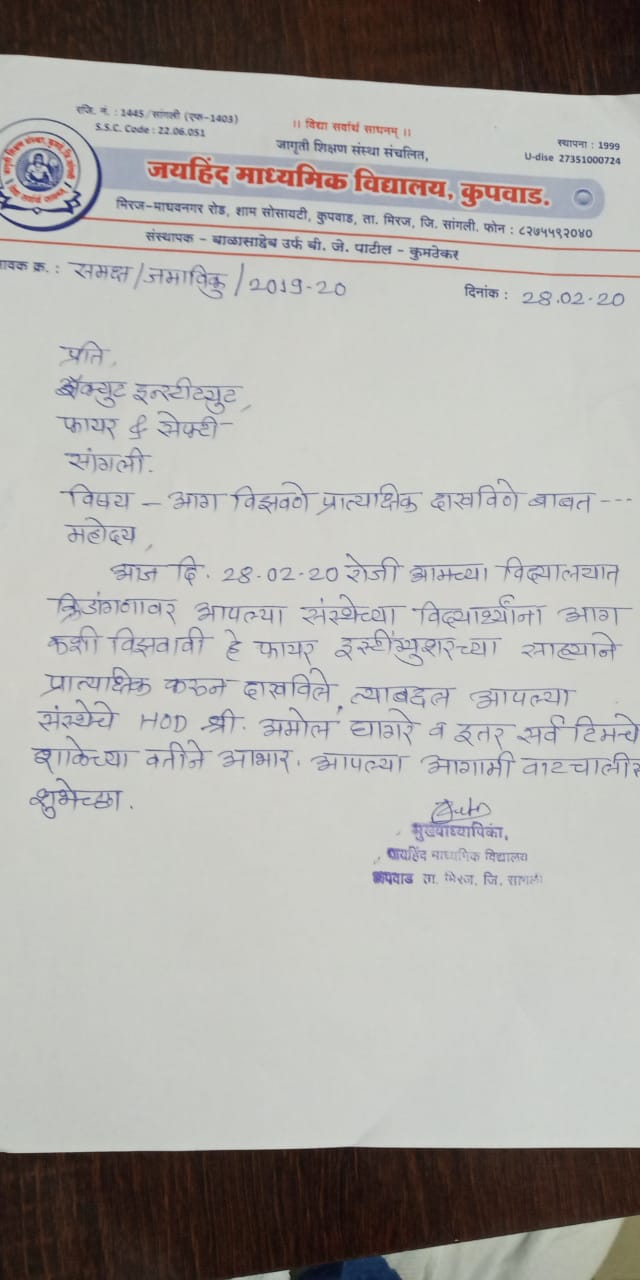 रजि. नं. : 1445/सांगली (एफ-1403)
S.S.C. Code : 22.06.051
।। विद्या सर्वार्थ साधनम् ।।
जागृती शिक्षण संस्था संचलित,
स्थापना : 1999
U-dise 27351000724
जयहिंद माध्यमिक विद्यालय, कुपवाड.
मिरज-माधवनगर रोड, शाम सोसायटी, कुपवाड, ता. मिरज, जि. सांगली. फोन : ८२७५५९२०४०
संस्थापक - बाळासाहेब उर्फ बी. जे. पाटील - कुमठेकर
जावक क्र. : समक्ष/जमाविकु/2019-20
दिनांक : 28.02-20
प्रति,
इन्स्टीट्युट,
फायर & सेफ्टी
सांगली.
विषय - आग विझवणे प्रात्याक्षिक दाखविणे बाबत ---
महोदय,
आज दि. 28-02-20 रोजी आमच्या विद्यालयात
क्रिडांगणावर आपल्या संस्थेच्या विद्यार्थ्यांना आग
कशी विझवावी हे फायर साह्याने
प्रात्याक्षिक करुन दाखविले, त्याबद्दल आपल्या
संस्थेचे HOD श्री. अमोल घागरे व इतर सर्व टिमचे
शाळेच्या वतीने आभार. आपल्या आगामी वाटचालीस
शुभेच्छा.
मुख्याध्यापिका,
जयहिंद माध्यमिक विद्यालय
कुपवाड ता. मिरज, जि. सांगली